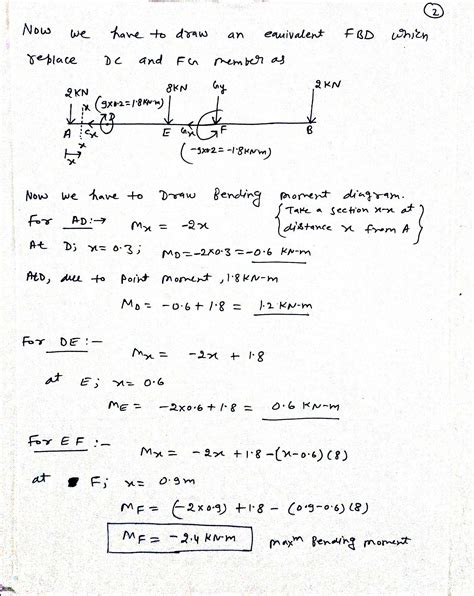 2
Now we have to draw an equivalent FBD which
replace DC and FG member as
2KN 8KN Gy 2KN
(9x0.2=1.8KN-m)
x D
A Cx E Gx F B
x
x
(-9x0.2=-1.8KN-m)
Now we have to Draw Bending moment diagram.
For AD:→ Mx = -2x {Take a section x-x at
distance x from A}
At D; x=0.3; MD=-2x0.3=-0.6 KN-m
AtD, due to point moment, 1.8KN-m
MD = -0.6+1.8 = 1.2 KN-m
For DE:-
Mx = -2x + 1.8
at E; x=0.6
ME = -2x0.6+1.8 = 0.6 KN-m
For EF:-
Mx = -2x+1.8-(x-0.6)(8)
at F; x= 0.9m
MF = (-2x0.9)+1.8-(0.9-0.6)(8)
MF = -2.4 KN-m maxm Bending moment